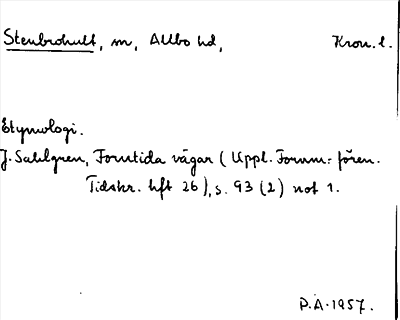 Stenbrohult, sn, Allbo hd, Kron. l.
Etymologi.
J. Sahlgren, Forntida vägar (Uppl. Fornm:fören.
Tidskr. hft 26), s. 93 (2) not 1.
P.Å. 1957.